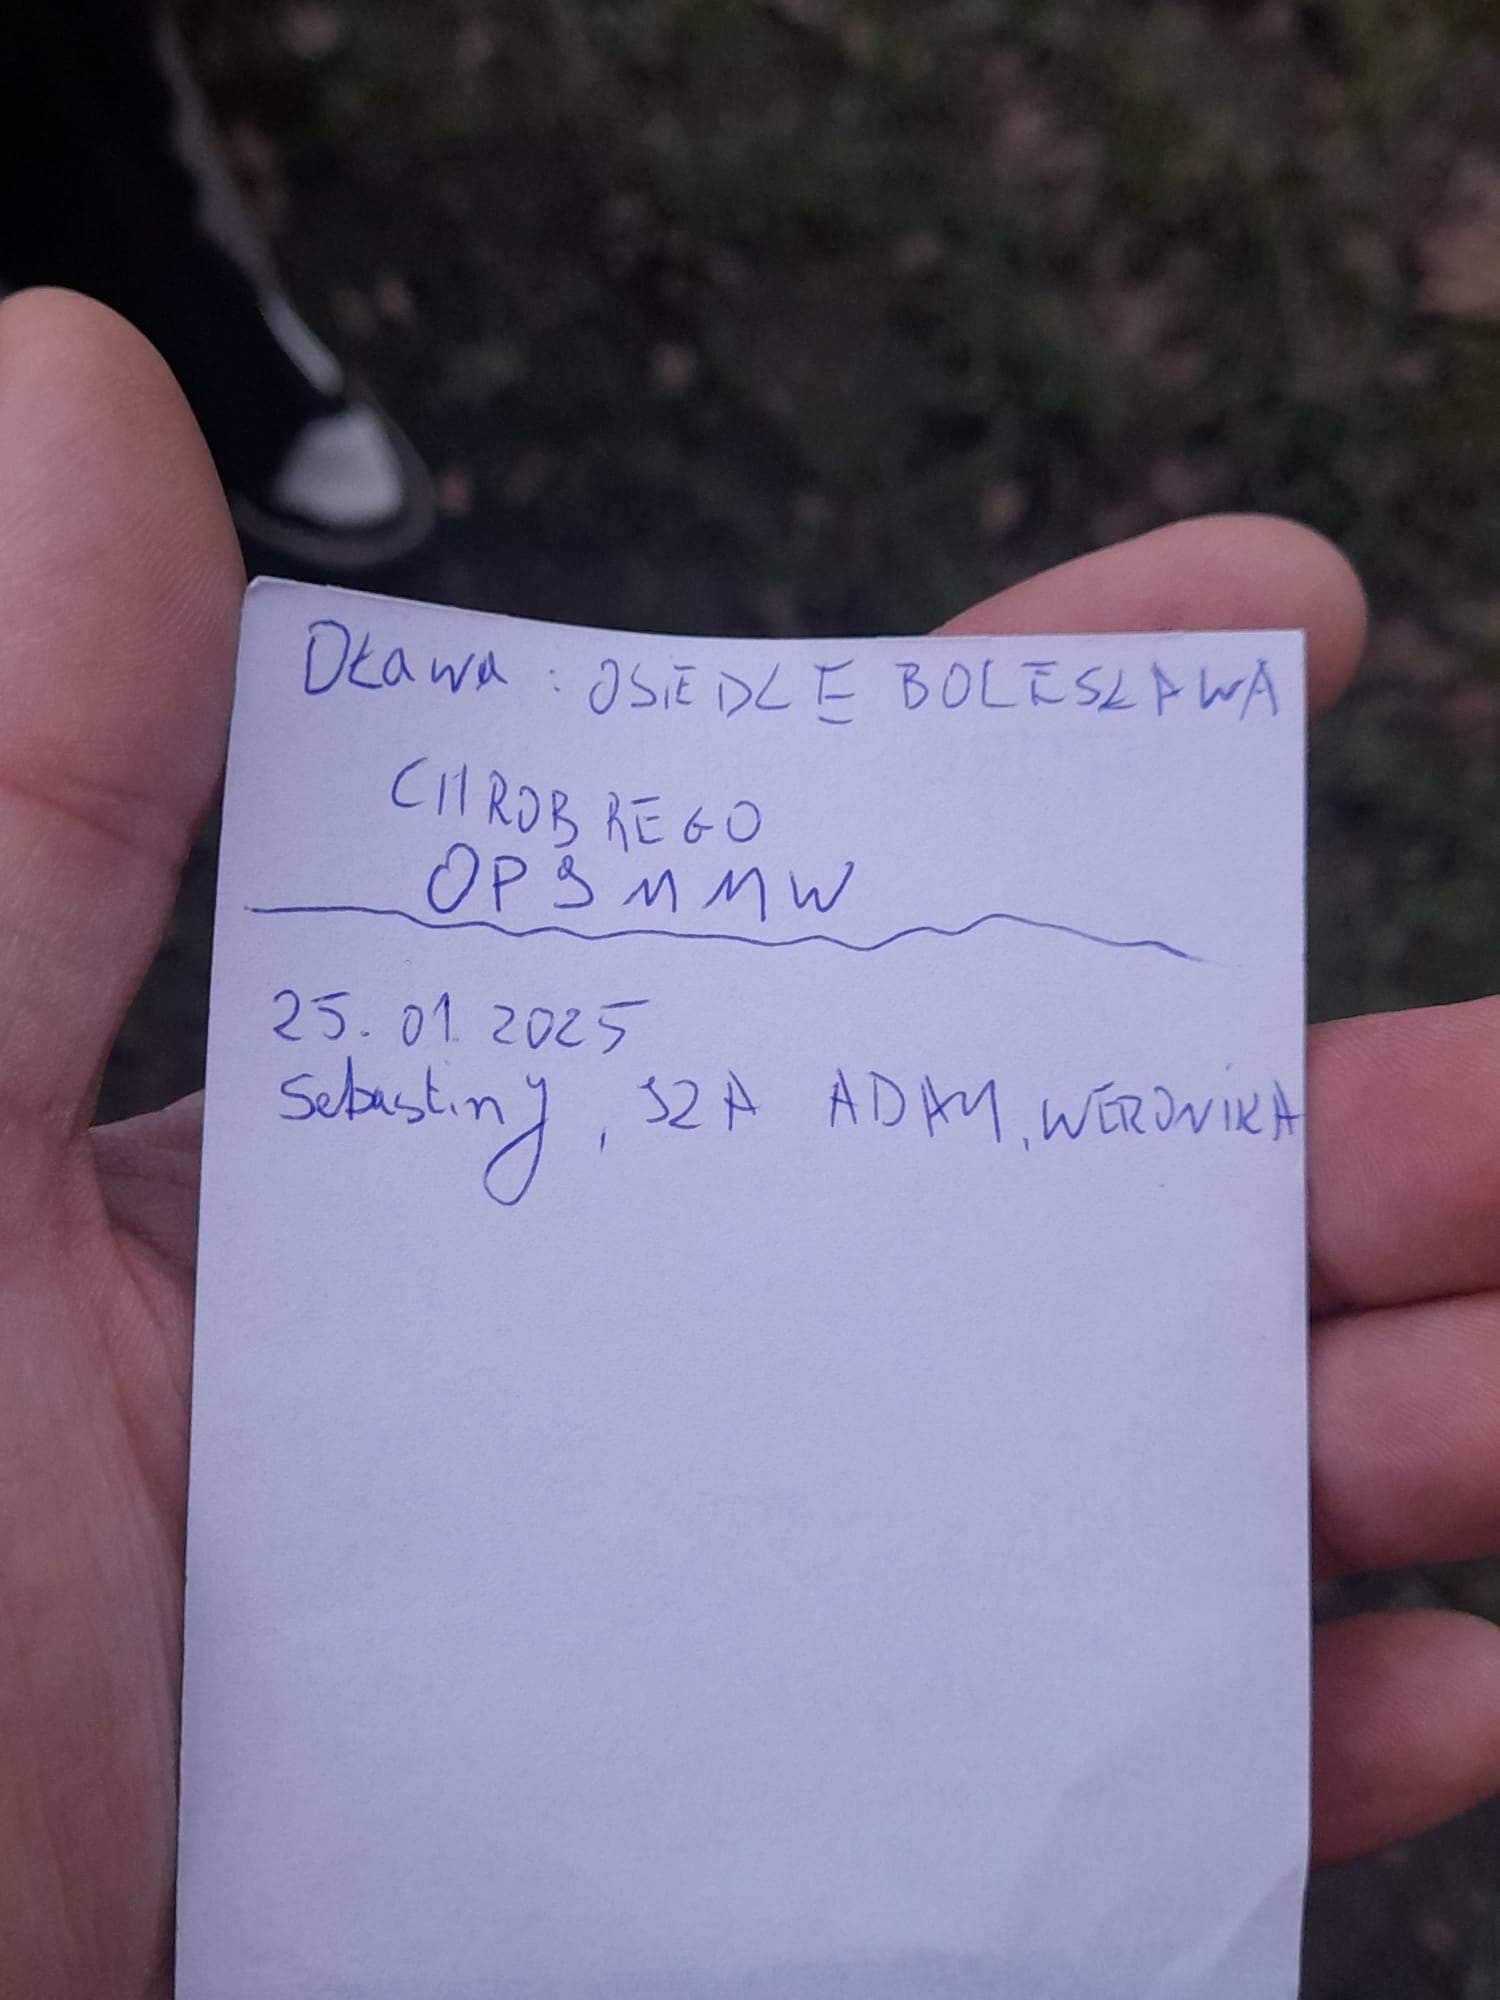 Oława : OSIEDLE BOLESŁAWA
CHROBREGO
OPSMMW
25.01.2025
Sebastiny, SZA ADAM, WERONIKA